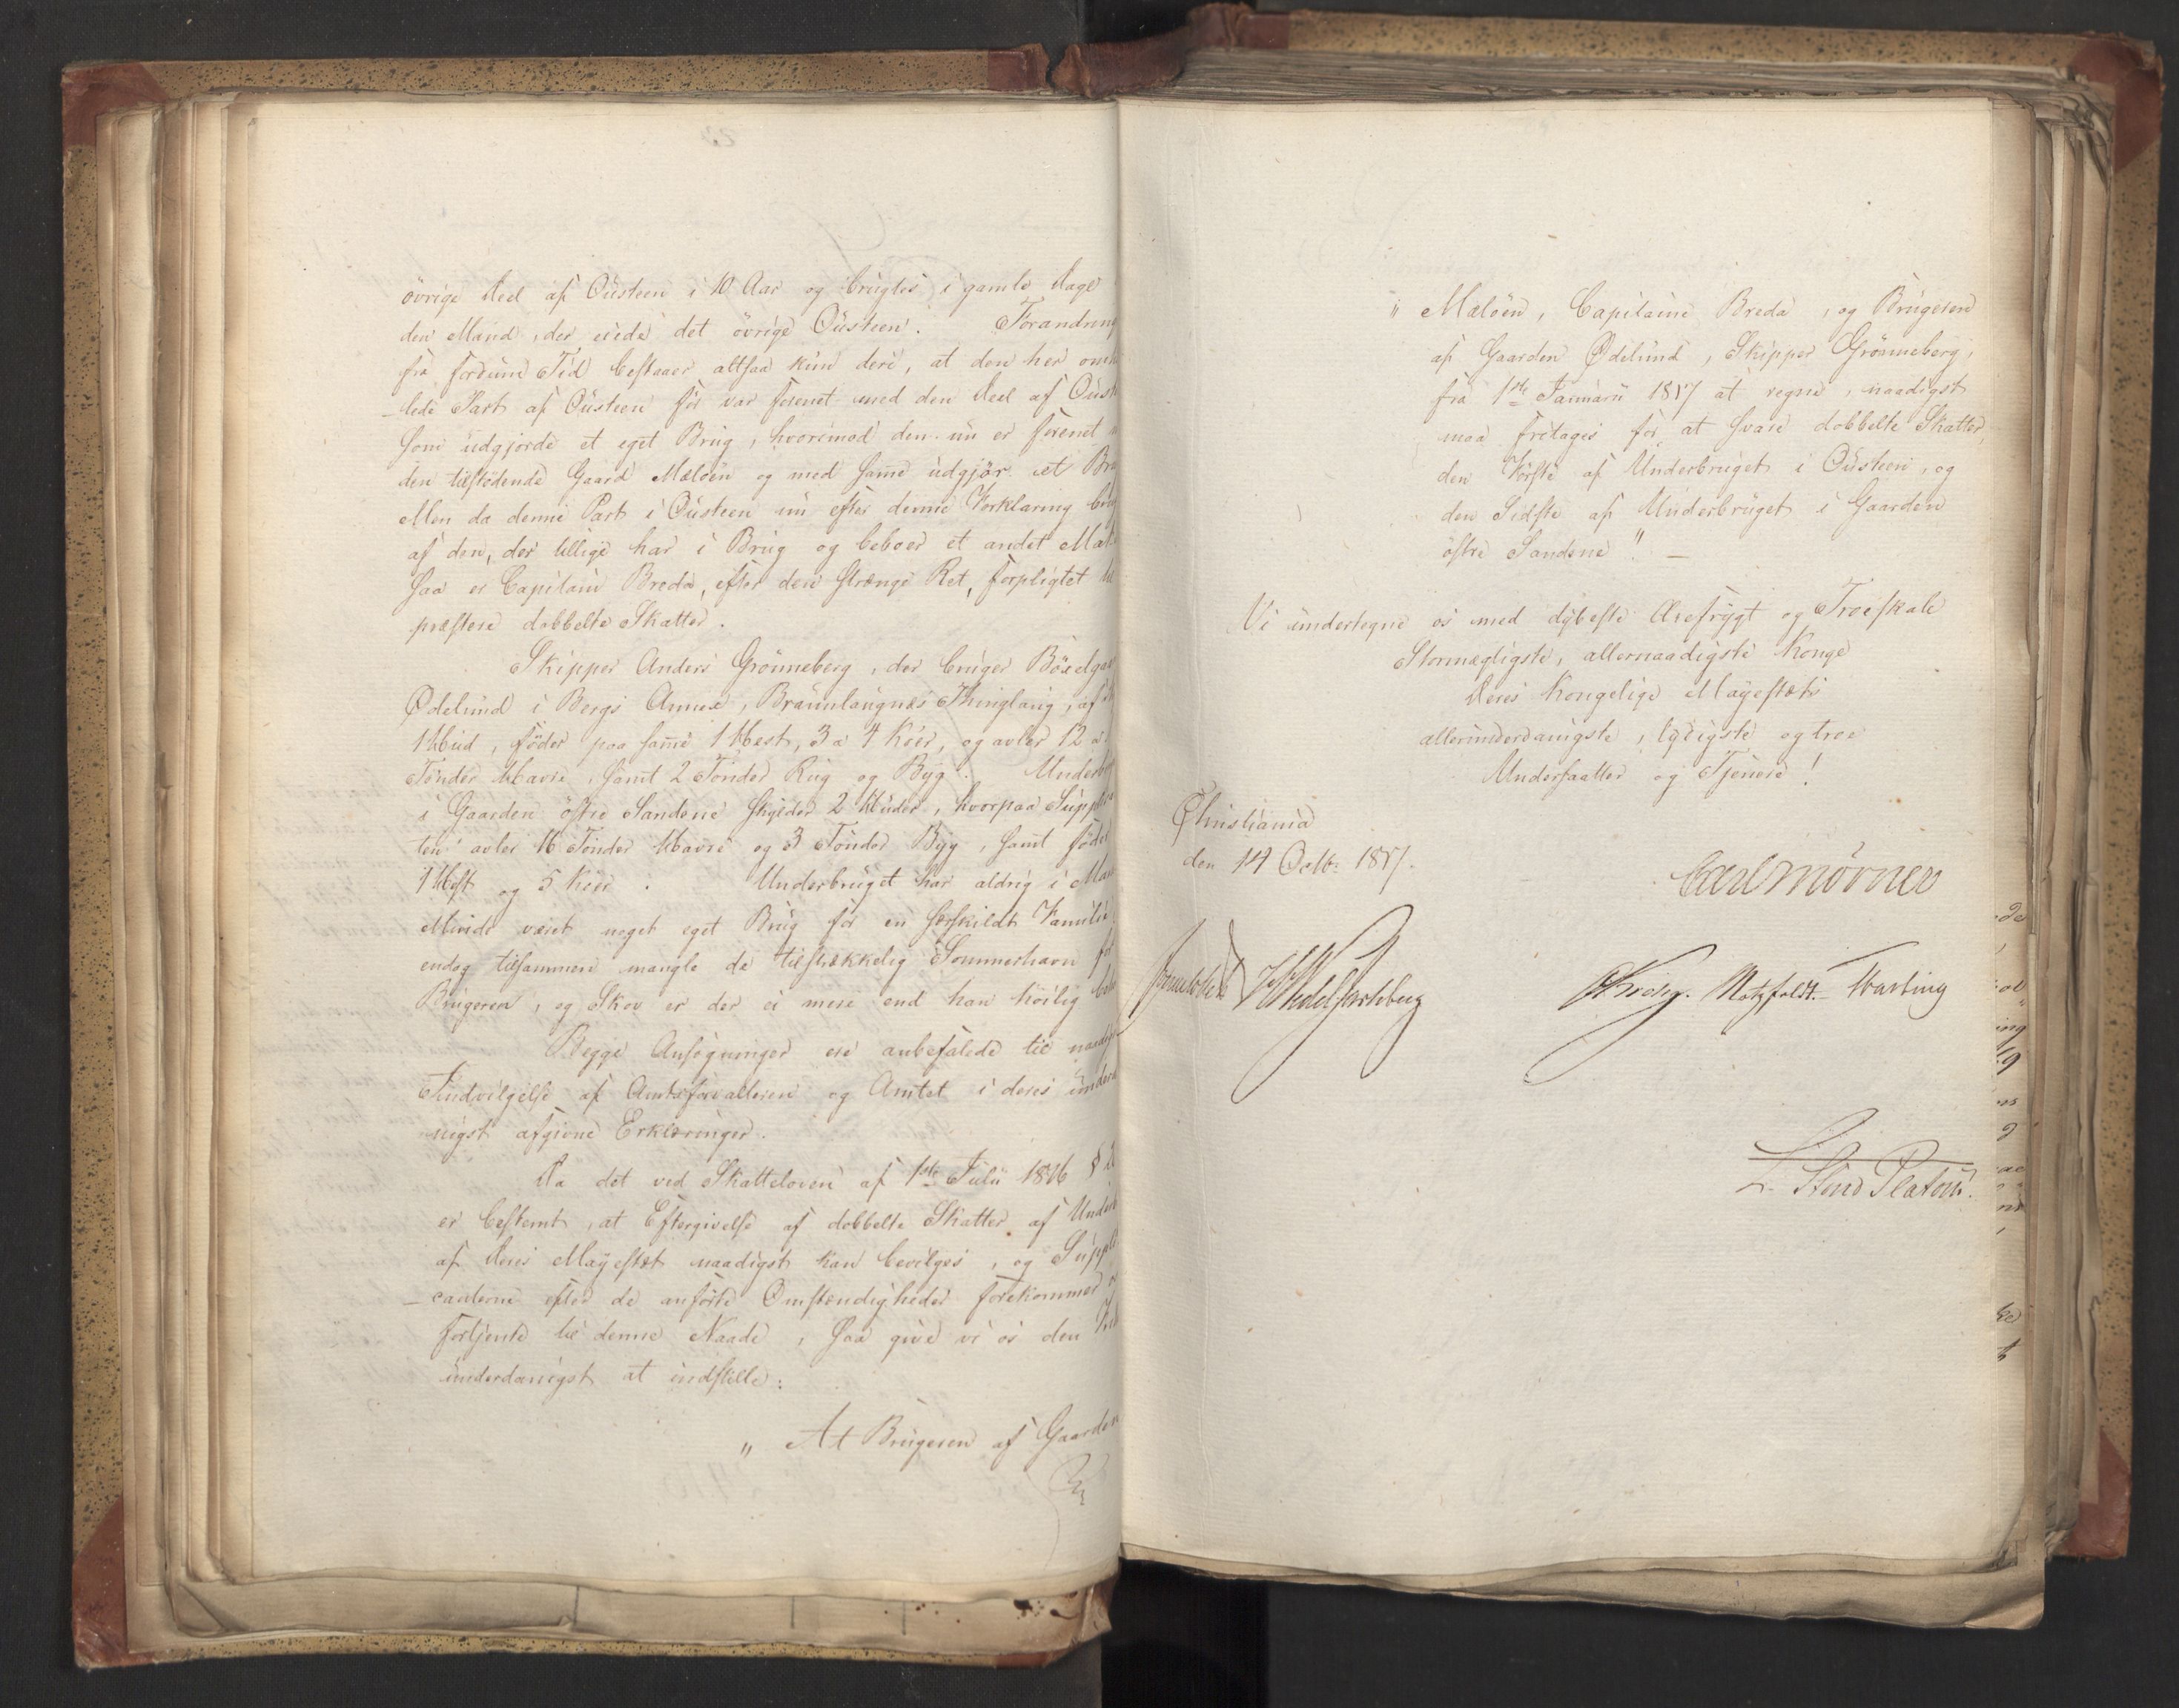 övrige Deel af Ousteen i 10 Aar og brugtes i gamle Dage
den Mand, der eiede det övrige Ousteen. Forandring
fra fordum Tid bestaaer altsaa kun deri, at den her om
lede Part af Ousteen för var forenet med den Deel af Oust
som udgjorde et eget Brug, hvorimod den nu er forenet
den tilstödende Gaard Mælöen og med samme udgjör et Br
Men da denne Part i Ousteen nu efter denne Forklaring
af den, der tillige har i Brug og beboer et andet Mat
saa er Capitain Breda, efter den strænge Ret, forpligtet
præstere dobbelte Skatter.
Skipper Anders Grönneberg, der bruger Böxelgaar
Ødelund i Bergs Annex, Braunlaugnæs Thinglaug, af
1 Hud, föder paa samme 1 Hest, 3 a 4 Köer, og avler 12 a
Tönder Havre, samt 2 Tönder Rug og Byg. Underbr
i Gaarden östre Sandsne skylder 2 Huder, hvorpaa Suppli
ten avler 16 Tönder Havre og 3 Tönder Byg, samt föder
1 Hest og 5 Köer. Underbruget har aldrig i Man
Minde været noget eget Brug for en særskildt Familie
endog tilsammen mangle de tilstrækkelig Sommerhavn for
Brugeren, og Skov er der ei mere end han höilig
Begge Ansögninger ere anbefalede til naadigst
Indvilgelse af Amtsforvalteren og Amtet i deres underd
nigst afgivne Erklæringer.
Da det ved Skatteloven af 1ste Julii 1816 §
er bestemt, at Eftergivelse af dobbelte Skatter af Under
af Deres Mayestæt naadigst kan bevilges, og Suppli
canterne efter de anförte Omstændigheder forekommer
fortjente til denne Naade, saa give vi os den
underdanigst at indstille:
„ At Brugeren af Gaarden
„ Mælöen, Capitaine Breda, og Brugeren
af Gaarden Ødelund, Skipper Grönneberg,
fra 1ste Januarii 1817 at regne, naadigst
maa fritages for at svare dobbelte Skatter,
den Förste af Underbruget i Ousteen, og
den Sidste af Underbruget i Gaarden
östre Sandsne". —
Vi undertegne os med dybeste Ærefrygt og Troeskab
Stormægtigste, allernaadigste Konge
Deres Kongelige Mayestæts
allerunderdanigste, lydigste og troe
Undersaatter og Tjenere!
Christiania
den 14 Octbr 1817.
Carl Mörner
Sommerhielm HWedel Jarlsberg CKrohg. Motzfeldt. Fasting
L. Stoud Platou.